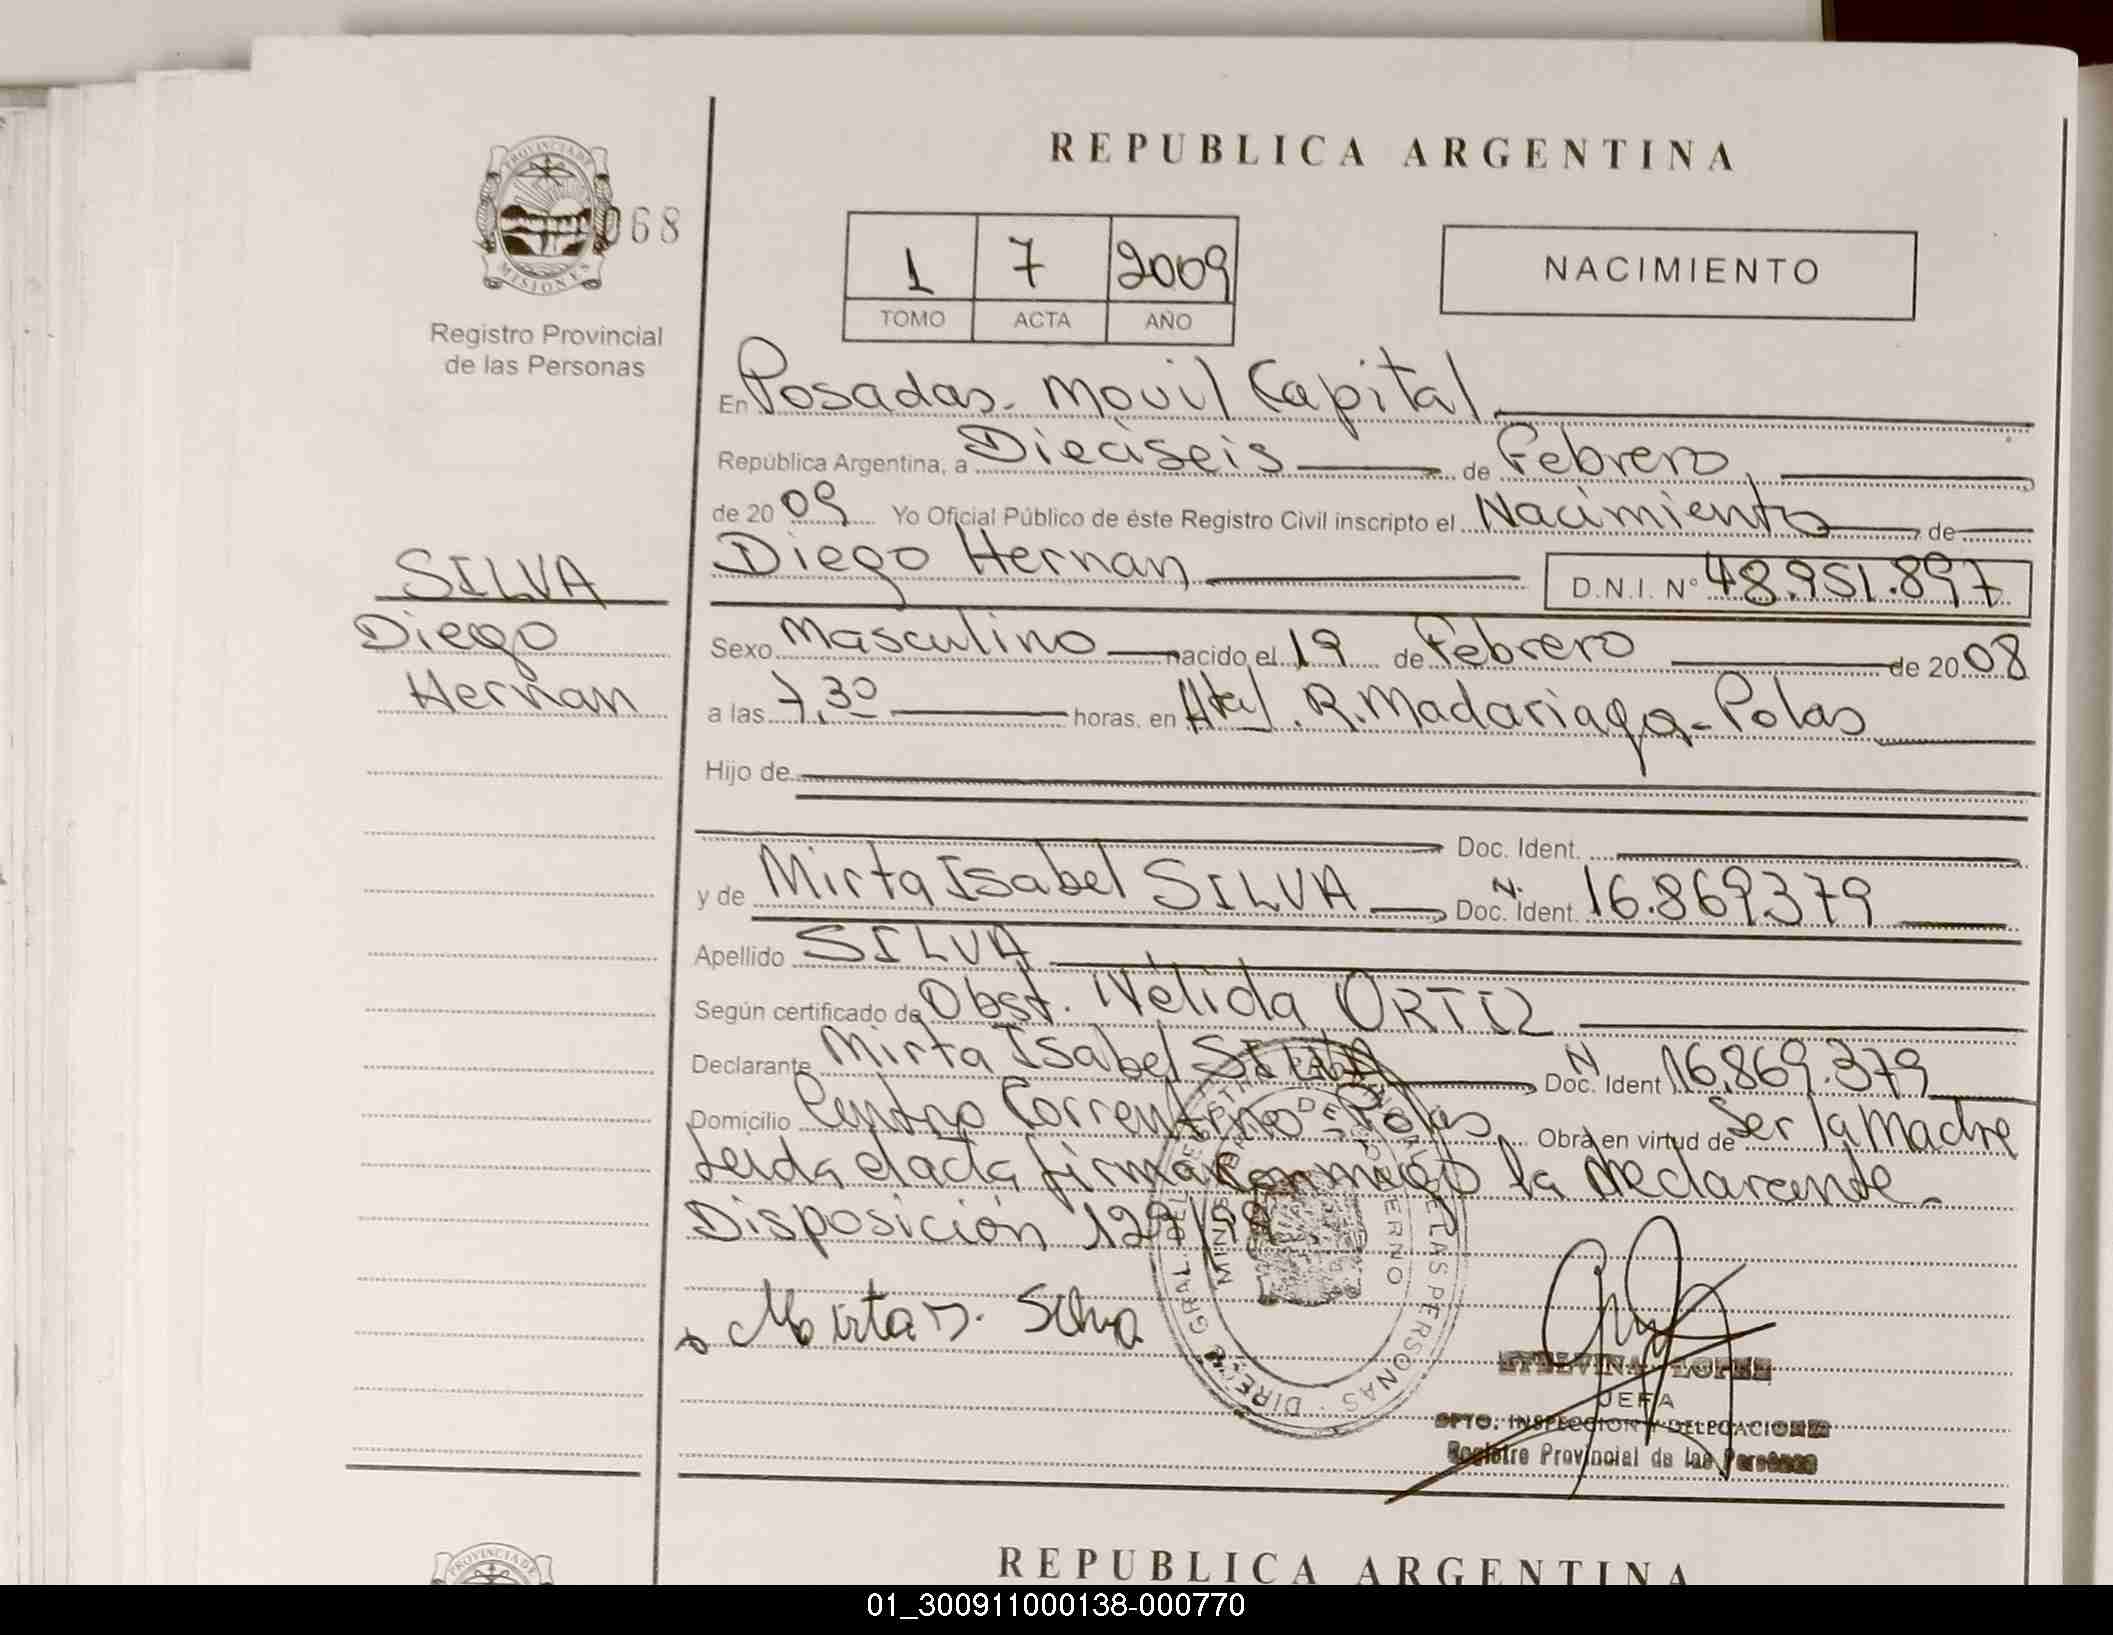 REPUBLICA ARGENTINA
PROVINCIA DE
MISIONES
068
Registro Provincial
de las Personas
1 7 2009
TOMO ACTA AÑO
NACIMIENTO
En Posadas. Movil Capital
República Argentina, a Dieciseis de Febrero
de 2009 Yo Oficial Público de éste Registro Civil inscripto el Nacimiento de
SILVA
Diego
Hernan
Diego Hernan D.N.I. Nº 48.951.897
Sexo Masculino nacido el 19 de Febrero de 2008
a las 7,30 horas. en Htal. R. Madariaga - Pdas
Hijo de
Doc. Ident.
y de Mirta Isabel SILVA Doc. N. Ident. 16.869.379
Apellido SILVA
Según certificado de Obst. Nélida ORTIZ
Declarante Mirta Isabel SILVA Doc. N Ident 16.869.379
Domicilio Centro Correntino - Pdas Obra en virtud de Ser la Madre
Leida el acta firma conmigo la declarante.
Disposición
Mirta I. Silva
DE LAS PERSONAS
ETELVINA LOPEZ
JEFA
DPTO. INSPECCION Y DELEGACIONES
Registro Provincial de las Personas
PROVINCIA DE
REPUBLICA ARGENTINA
01_300911000138-000770